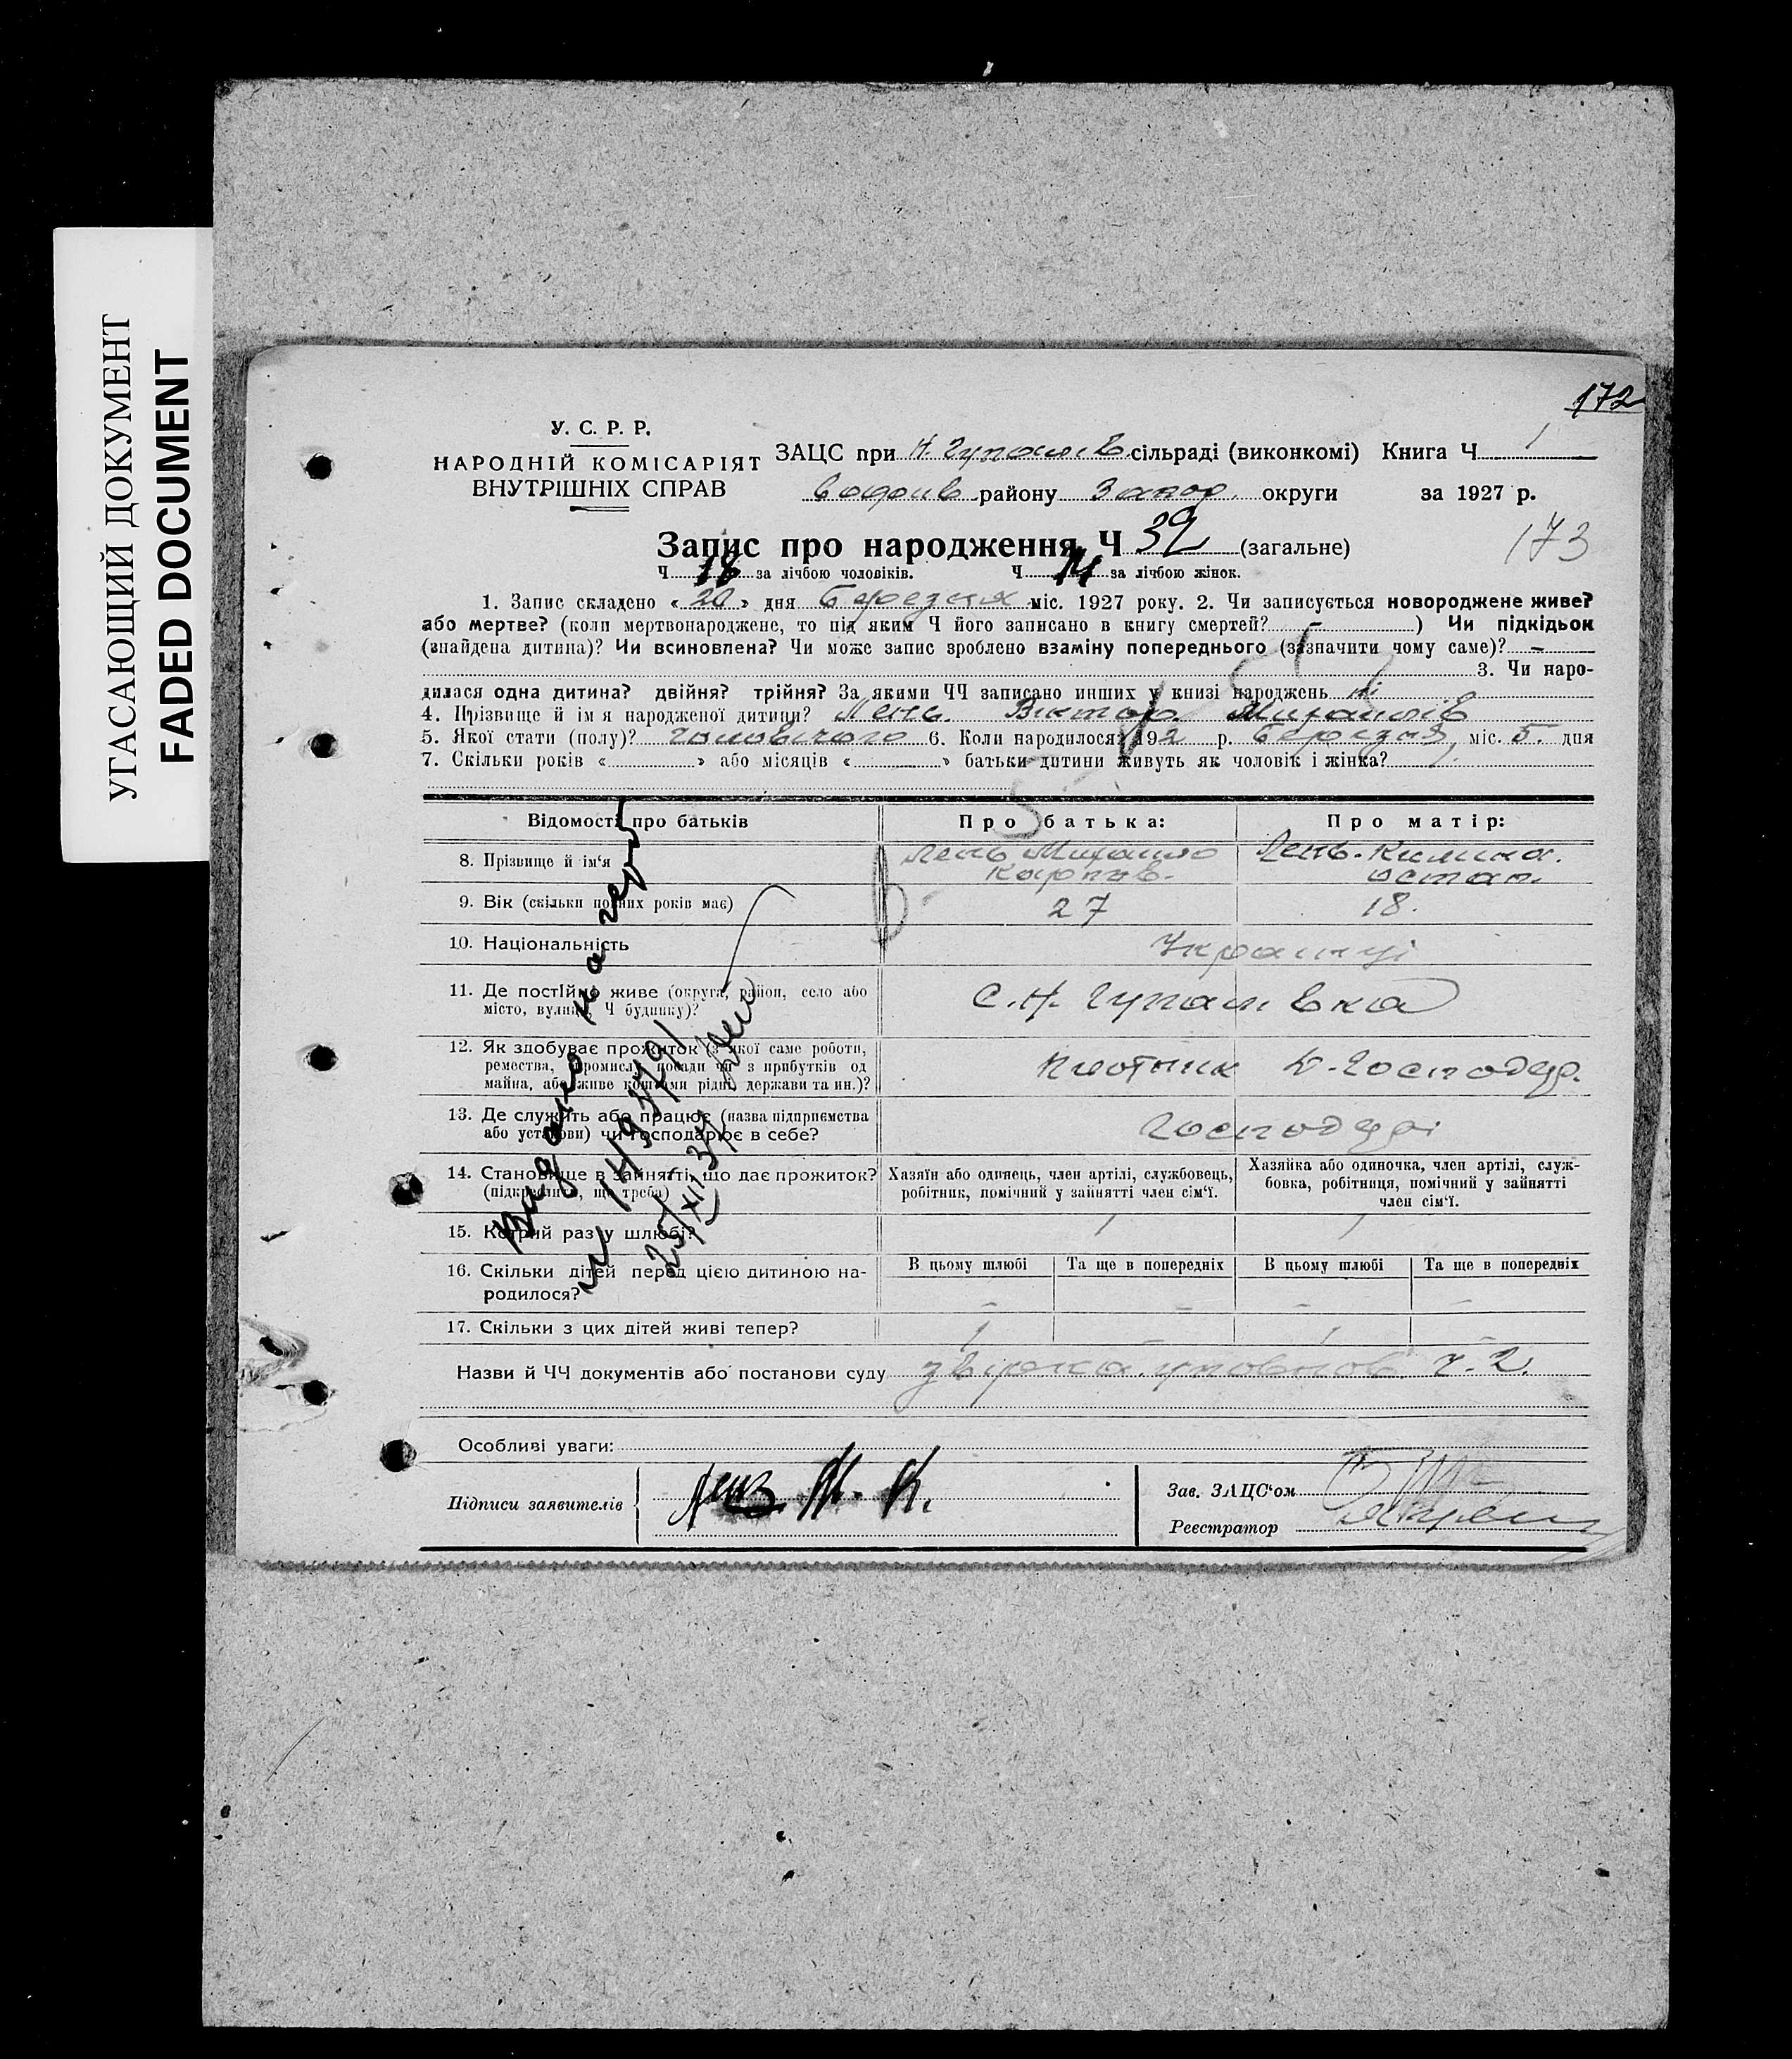 УГАСАЮЩИЙ ДОКУМЕНТ
FADED DOCUMENT
172
У. С. Р. Р.
НАРОДНІЙ КОМІСАРІЯТ
ВНУТРІШНІХ СПРАВ
ЗАЦС при Н. Гупалів. сільраді (виконкомі) Книга Ч 1
району Запор. округи за 1927 р.
173
Запис про народження Ч 32 (загальне)
Ч 18 за лічбою чоловіків. Ч 14 за лічбою жінок.
1. Запис складено « 20 » дня Березня міс. 1927 року. 2. Чи записується новороджене живе?
або мертве? (коли мертвонароджене, то під яким Ч його записано в книгу смертей? – ) Чи підкідьок
(знайдена дитина)? Чи всиновлена? Чи може запис зроблено взаміну попереднього (зазначити чому саме)? –
3. Чи наро-
дилася одна дитина? двійня? трійня? За якими ЧЧ записано инших у книзі народжень ні
4. Прізвище й ім'я народженої дитини? Лень Віктор Михайлів
5. Якої стати (полу)? чоловічого 6. Коли народилося? 192 р. Березня, міс. 5. дня
7. Скільки років « » або місяців « » батьки дитини живуть як чоловік і жінка?
Відомості про батьків
Про батька:
Про матір:
8. Прізвище й ім'я
Лень Михайло
Карпов.
Лень. Килина.
остап.
9. Вік (скільки повних років має)
27
18.
10. Національність
Українці
11. Де постійно живе (округа, район, село або
місто, вулиця, Ч будинку)?
С. Н. Гупалівка
12. Як здобуває прожиток (з якої саме роботи,
ремества, промислу, посади чи з прибутків од
майна, або живе коштами рідні, держави та ин.)?
плотник Д-Господар.
13. Де служить або працює (назва підприємства
або установи) чи господарює в себе?
14. Становище в зайнятті, що дає прожиток?
(підкреслити, що треба)
Хазяїн або одинець, член артілі, службовець,
робітник, помічний у зайнятті член сім'ї.
Хазяйка або одиночка, член артілі, служ-
бовка, робітниця, помічний у зайнятті
член сім'ї.
15. Котрий раз у шлюбі?
1
1
16. Скільки дітей перед цією дитиною на-
родилося?
В цьому шлюбі
Та ще в попередніх
В цьому шлюбі
Та ще в попередніх
–
–
–
–
17. Скільки з цих дітей живі тепер?
1
–
1
–
Назви й ЧЧ документів або постанови суду ч. 2.
Особливі уваги:
Підписи заявителів
М. К.
Зав. ЗАЦС'ом
Реєстратор